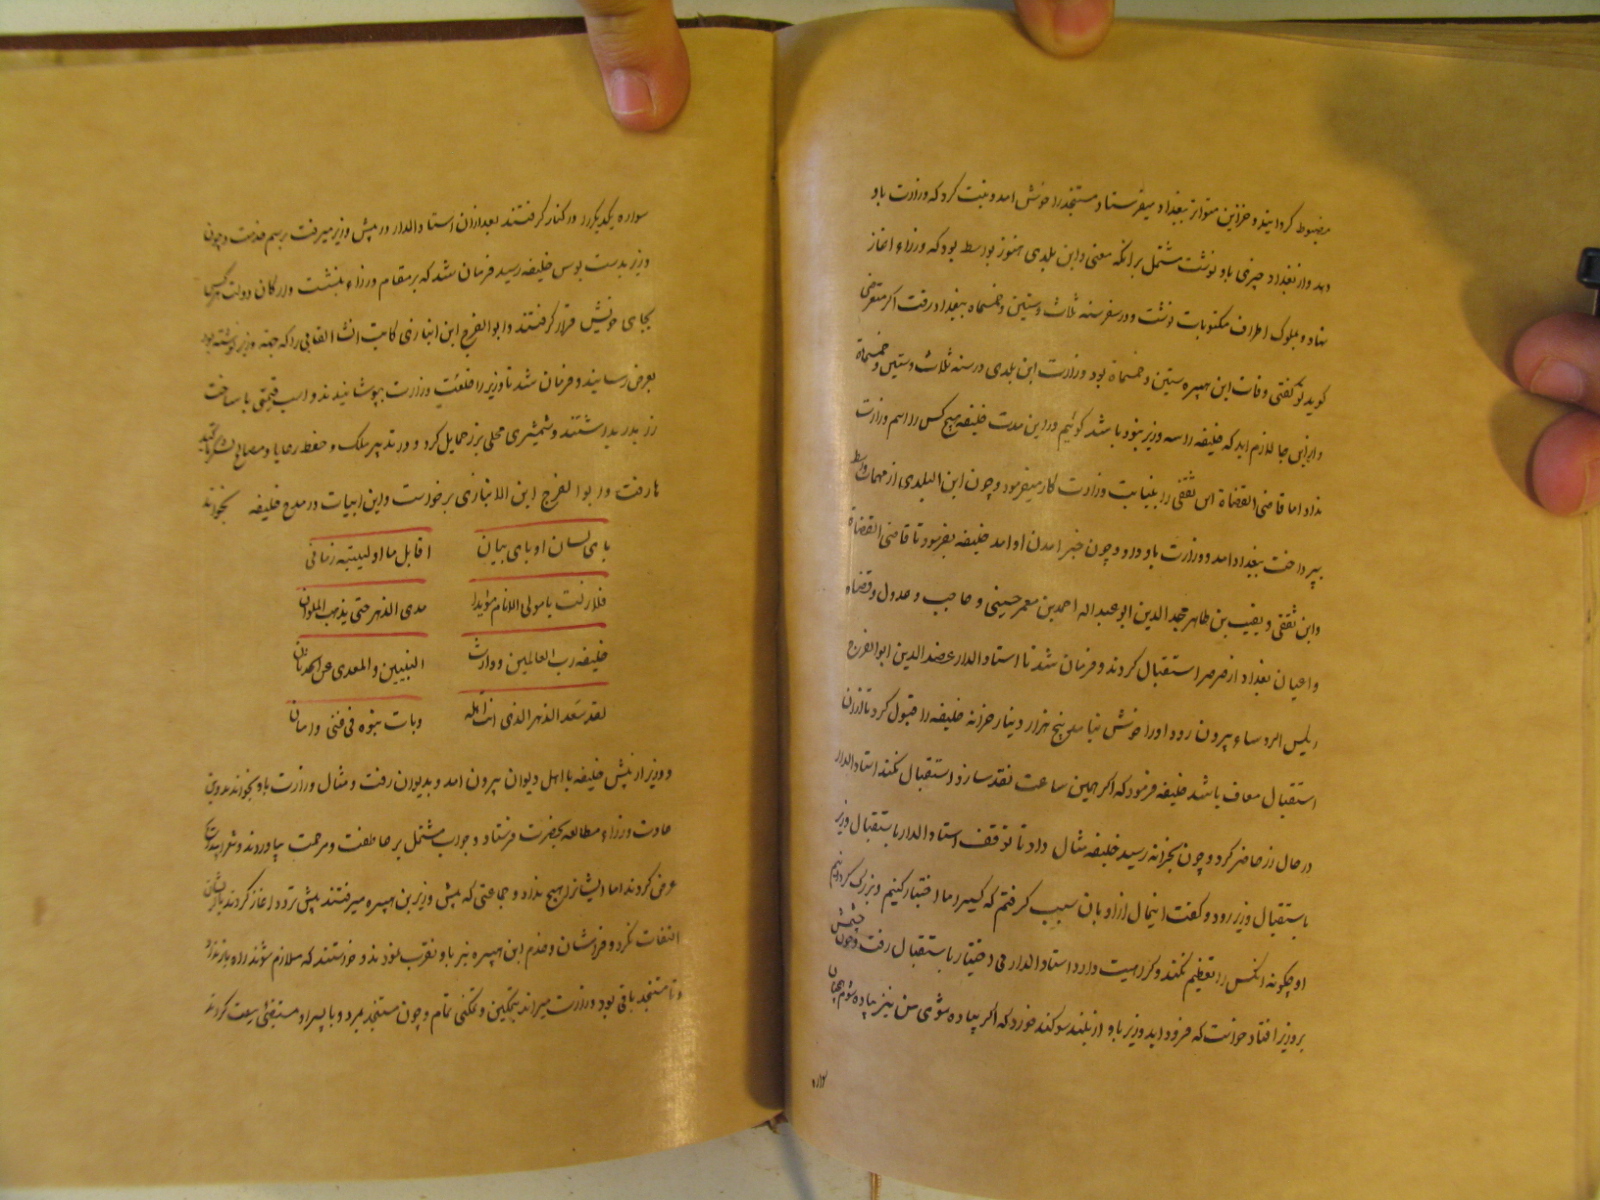 مضبوط کردانید و خزاین متواتر ببغداد میفرستاد مستنجد را خوش امد و نیت کرد که وزارت باو
دهد و از بغداد چیزی باو نوشت مشتمل بر انکه معنی و ابن بلدی هنوز بواسط بود که وزراء اغاز
نهاد و بملوک اطراف مکتوبات نوشت و در صفر سنه ثلاث و ستین و خمسماه ببغداد رفت اکر معترضی
کوید تو کفتی وفات ابن هبیره ستین و خمسماة بود وزارت ابن بلدی در سنه ثلاث و ستین و خمسماة
و ازین جا لازم اید که خلیفه را سه وزیر نبود باشد کوئیم در این مدت خلیفه هیچ کس را اسم وزارت
نداد اما قاضی القضاة ابن ثقفی را بنیابت وزارت کار میفرمود و چون ابن البلدی از مهمات واسط
بپرداخت ببغداد امد و وزارت باو داد و چون خبر امدن او امد خلیفه بفرمود تا قاضی القضاة
و ابن ثقفی و نقیب بن طاهر مجد الدین ابو عبد اله احمد بن معمر حسینی و حاجب و عدول و قضاه
و اعیان بغداد از صرصر استقبال کردند و فرمان شد تا استاد الدار عضد الدین ابو الفرج
رییس الروساء بیرون رود او را خوش نیامد پنج هزار دینار خزانه خلیفه را قبول کرد تا ازان
استقبال معاف باشد خلیفه فرمود که اکر همین ساعت نقد سازد استقبال نکند استاد الدار
در حال زر حاضر کرد و چون بخزانه رسید خلیفه مثال داد تا توقف استاد الدار باستقبال وزیر
باستقبال وزیر رود و کفت اینمال ازو بان سبب کرفتم که کسیرا ما اختیار کنیم و بزرک کردانیم
او چکونه انکس را تعظیم نکند و کراهیت دارد استاد الدار بی اختیار باستقبال رفت و چون چشمش
بر وزیر افتاد خواست که فرود اید وزیر باو از بلند سوکند خورد که اکر پیاده شوی من نیز پیاده شوم
سواره یکدیکر را در کنار کرفتند بعد ازان استاد الدار در پیش وزیر میرفت برسم خدمت و چون
وزیر بدست بوس خلیفه رسید فرمان شد که بر مقام وزراء بنشست و ارکان دولت هر کس
بجای خویش قرار کرفتند و ابو الفرج ابن انباری کاتب انشا القابی را که جهة وزیر نوشته بود
بعرض رسانید و فرمان شد تا وزیر را خلعت وزارت بپوشانیدند و اسب قیمتی با ساخت
زر بدر بداشتند و شمشیری محلی بزر حمایل کرد و در تدبیر ملک و حفظ رعایا و مصالح
و ابو الفرج ابن الانباری برخواست و این ابیات در مدح خلیفه بخواند
بای لسان او بای بیان اقابل ما اولیتنیه زمانی
فلا زلت یا مولی الانام مؤیدا مدی الدهر حتی یذهب الملوان
خلیفه رب العالمین و وارث النبیین و المعدی عن الحدثان
لقد سعد الدهر الذی انت اهله و بات بنوه فی غنی و امان
و وزیر از پیش خلیفه با اهل دیوان بیرون امد و بدیوان رفت و مثال وزارت باو بخواندند و بر
عادت وزراء مطالعه بحضرت فرستاد و جواب مشتمل بر عاطفت و مرحمت بیاوردند و شعرا
عرض کردند اما ایشانرا هیچ نداد و جماعتی که پیش وزیر بن هبیره میرفتند پیش تردد اغاز کردند بایشان
التفات نکرد و فراشان و خدم ابن هبیره نیز باو تقرب نمودند و خواستند که ملازم شوند راه باز نداد
و تا مستنجد باقی بود وزارت میراند بتمکین و تمکنی تمام و چون مستنجد بمرد و با پسر او مستضئ بیعت کردند